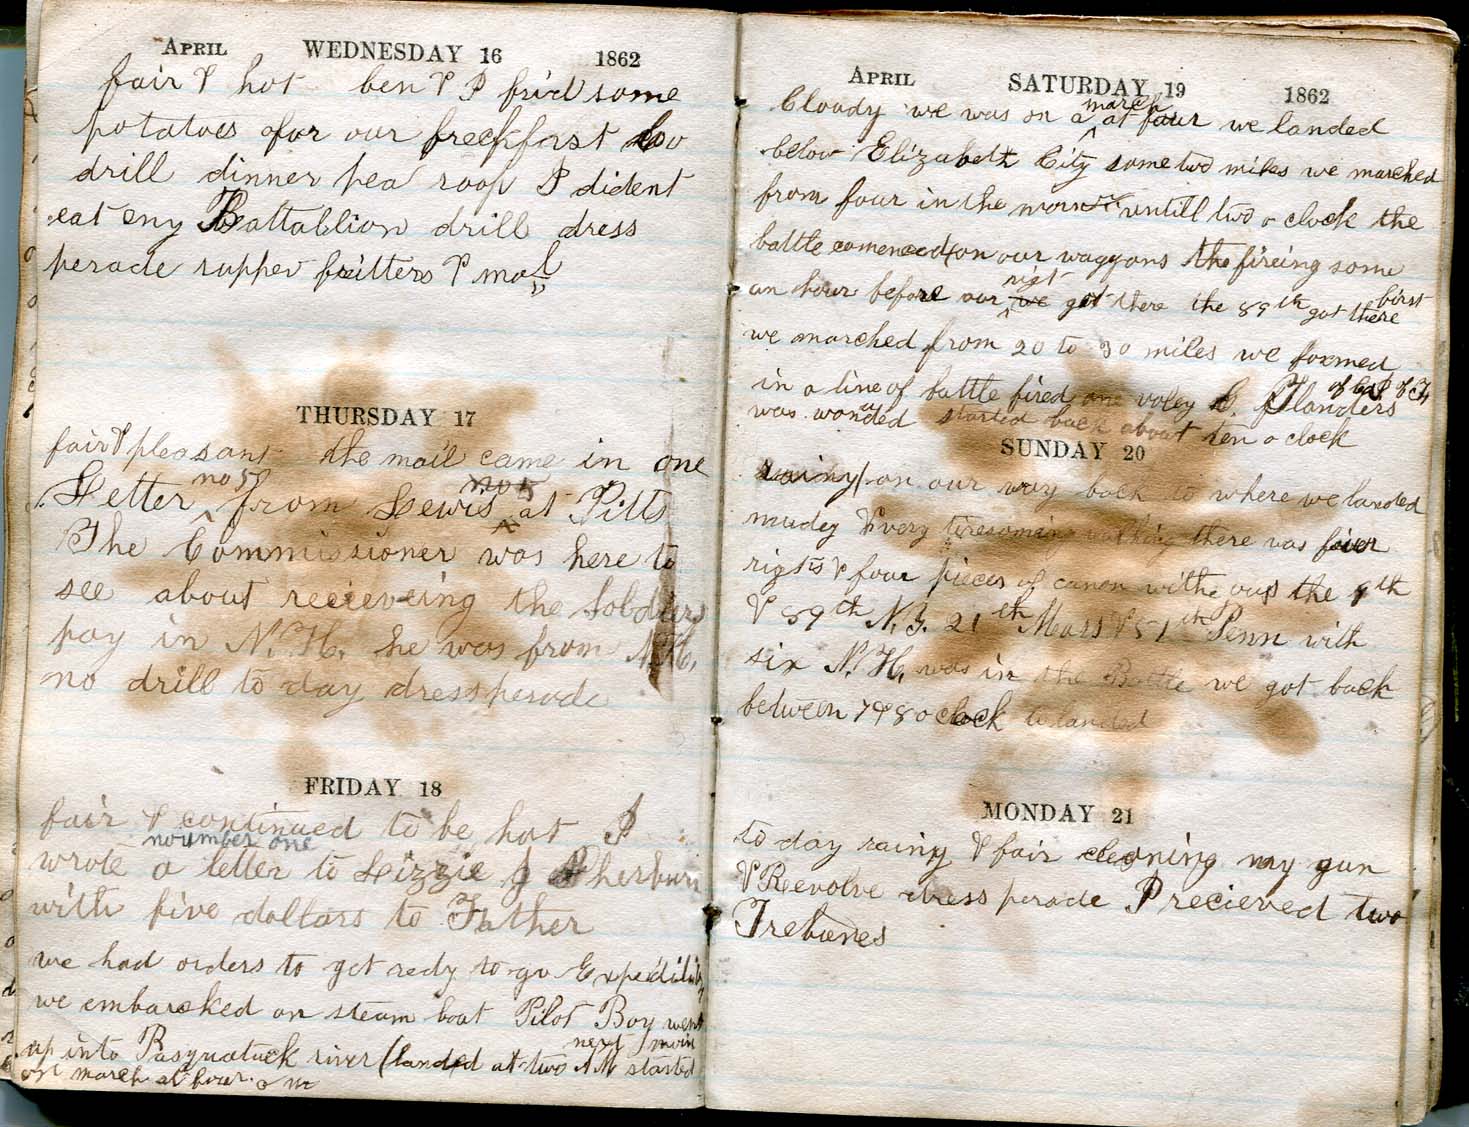 APRIL WEDNESDAY 16 1862
fair & hot ben & I fri'd some
potatoes for our breekfast
drill dinner pea soop I dident
eat eny Battallion drill dress
perade supper fritters & mol
THURSDAY 17
fair & pleasant the mail came in one
Letter no 5 from Lewis no 5 at Pitts
The Commissioner was here to
see about recieveing the Soldiers
pay in N. H. he was from N. H.
no drill to day dress perade
FRIDAY 18
fair & continued to be hot I
noumber one
wrote a letter to Lizzie J Sherburn
with five dollars to Father
we had orders to get redy to go
we embarcked on steam boat Pilot Boy went
next morn
up into Pasquatuck river (landed at two AM started
on march at four
APRIL SATURDAY 19 1862
march
Cloudy we was on a at four we landed
below Elizabeth City some two miles we marched
from four in the morn untill two o clock the
battle comenced on our waggons the fireing some
rigt
an hour before our we got there the 89th got there first
we marched from 20 to 30 miles we formed
in a line of battle fired one voley C. Flanders of Co
was wounded started back about ten o clock
SUNDAY 20
rainy on our way back to where we landed
mudey & very tiresoming walking there was
rigts & four pieces of canon withe us the 9th
& 89th N. Y. 21th Mass & 51th Penn with
six N. H. was in the Battle we got back
between 7 & 8 o clock to landed
MONDAY 21
to day rainy & fair cleaning my gun
& Revolve dress perade I recieved two
Trebunes